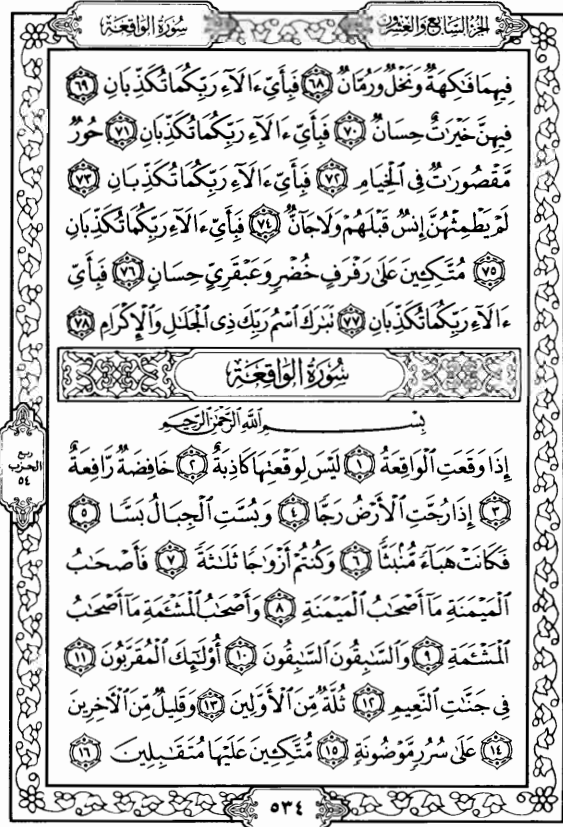 سُورَةُ الوَاقِعَةِ
الجُزْءُ السَّابِعُ وَالعِشْرُونَ
فِيهِمَا فَٰكِهَةٌ وَنَخْلٌ وَرُمَّانٌ ٦٨ فَبِأَيِّ ءَالَآءِ رَبِّكُمَا تُكَذِّبَانِ ٦٩
فِيهِنَّ خَيْرَٰتٌ حِسَانٌ ٧٠ فَبِأَيِّ ءَالَآءِ رَبِّكُمَا تُكَذِّبَانِ ٧١ حُورٌ
مَّقْصُورَٰتٌ فِي الْخِيَامِ ٧٢ فَبِأَيِّ ءَالَآءِ رَبِّكُمَا تُكَذِّبَانِ ٧٣
لَمْ يَطْمِثْهُنَّ إِنسٌ قَبْلَهُمْ وَلَا جَآنٌّ ٧٤ فَبِأَيِّ ءَالَآءِ رَبِّكُمَا تُكَذِّبَانِ
٧٥ مُتَّكِـِٔينَ عَلَىٰ رَفْرَفٍ خُضْرٍ وَعَبْقَرِيٍّ حِسَانٍ ٧٦ فَبِأَيِّ
ءَالَآءِ رَبِّكُمَا تُكَذِّبَانِ ٧٧ تَبَٰرَكَ ٱسْمُ رَبِّكَ ذِي الْجَلَٰلِ وَالْإِكْرَامِ ٧٨
سُورَةُ الوَاقِعَةِ
بِسْمِ اللَّهِ الرَّحْمَٰنِ الرَّحِيمِ
إِذَا وَقَعَتِ الْوَاقِعَةُ ١ لَيْسَ لِوَقْعَتِهَا كَاذِبَةٌ ٢ خَافِضَةٌ رَّافِعَةٌ
٣ إِذَا رُجَّتِ الْأَرْضُ رَجًّا ٤ وَبُسَّتِ الْجِبَالُ بَسًّا ٥
فَكَانَتْ هَبَآءً مُّنۢبَثًّا ٦ وَكُنتُمْ أَزْوَٰجًا ثَلَٰثَةً ٧ فَأَصْحَٰبُ
الْمَيْمَنَةِ مَآ أَصْحَٰبُ الْمَيْمَنَةِ ٨ وَأَصْحَٰبُ الْمَشْـَٔمَةِ مَآ أَصْحَٰبُ
الْمَشْـَٔمَةِ ٩ وَالسَّٰبِقُونَ السَّٰبِقُونَ ١٠ أُو۟لَٰٓئِكَ الْمُقَرَّبُونَ ١١
فِي جَنَّٰتِ النَّعِيمِ ١٢ ثُلَّةٌ مِّنَ الْأَوَّلِينَ ١٣ وَقَلِيلٌ مِّنَ الْآخِرِينَ
١٤ عَلَىٰ سُرُرٍ مَّوْضُونَةٍ ١٥ مُّتَّكِـِٔينَ عَلَيْهَا مُتَقَٰبِلِينَ ١٦
ربع
الحزب
٥٤
٥٣٤